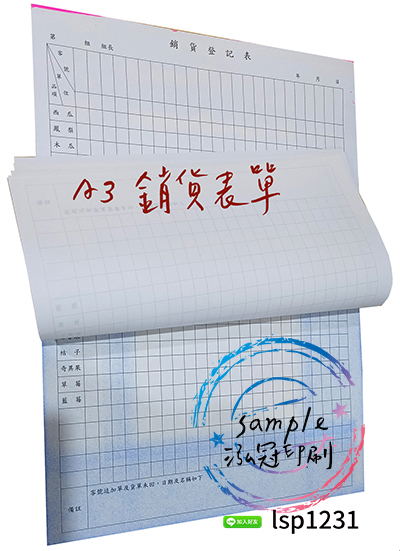 銷貨登記表
第 組 組長
年 月 日
客號
單位
品項
西瓜
鳳梨
木瓜
A3 銷貨表單
桔子
奇異果
草莓
藍莓
sample
泓冠印刷
備註
客號追加單及貨單未回，日期及名稱如下
加入好友
lsp1231